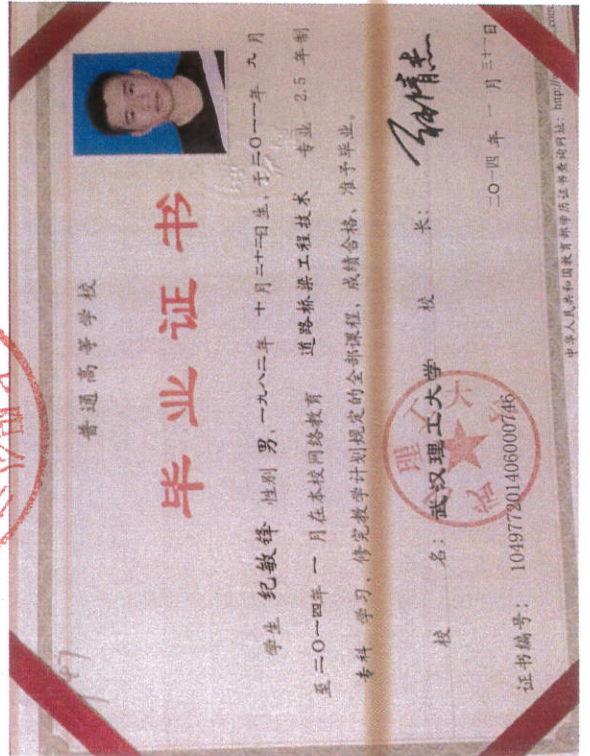 普通高等学校
毕业证书
学生 纪敏锋 性别 男，一九八二年 十月二十二日生，于二〇一一年 九月
至二〇一四年 一 月在本校网络教育 道路桥梁工程技术 专业 2.5 年制
专科 学习，修完教学计划规定的全部课程，成绩合格，准予毕业。
校 名：武汉理工大学 校 长：
证书编号：104977201406000746 二〇一四年 一 月三十一日
中华人民共和国教育部学历证书查询网址：http://